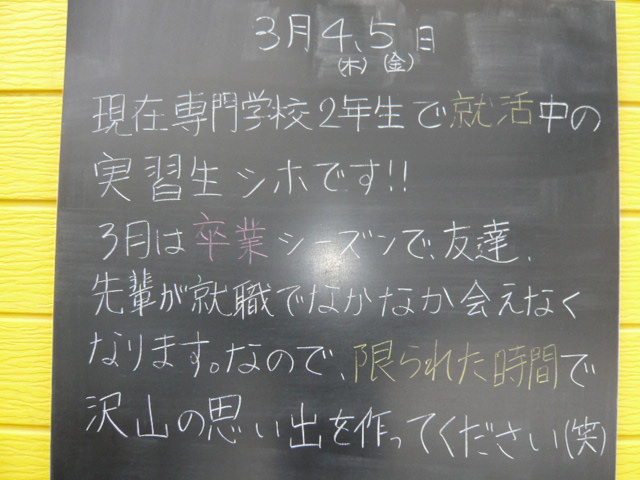 3月4、5日
(木) (金)
現在専門学校2年生で就活中の
実習生シホです!!
3月は卒業シーズンで、友達、
先輩が就職でなかなか会えなく
なります。なので、限られた時間で
沢山の思い出を作ってください(笑)